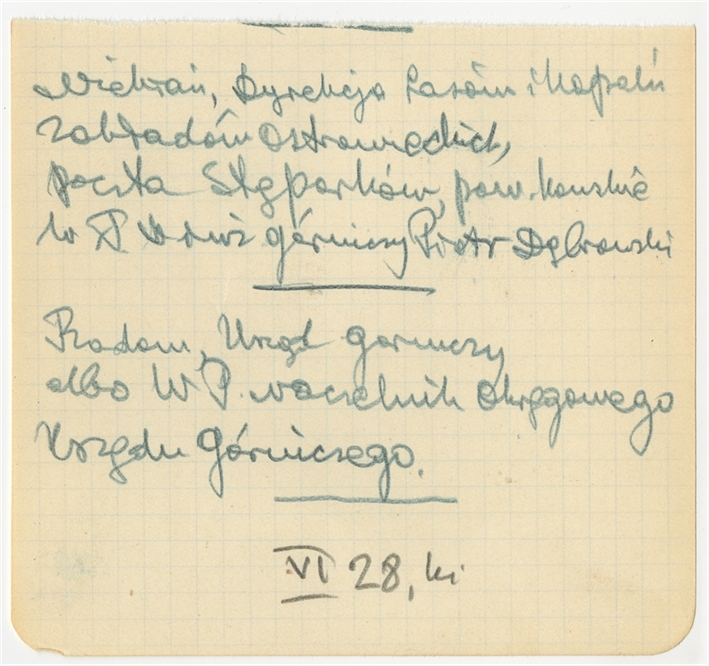 Niekłań, Dyrekcja Lasów i Kopalń
Zakładów Ostrowieckich,
poczta Stąporków, pow. Konskie
W P inż górniczy Piotr Dąbrowski
Radom, Urząd Gorniczy
albo W P. Naczelnik Okręgowego
Urzędu Górniczego.
VI 28,